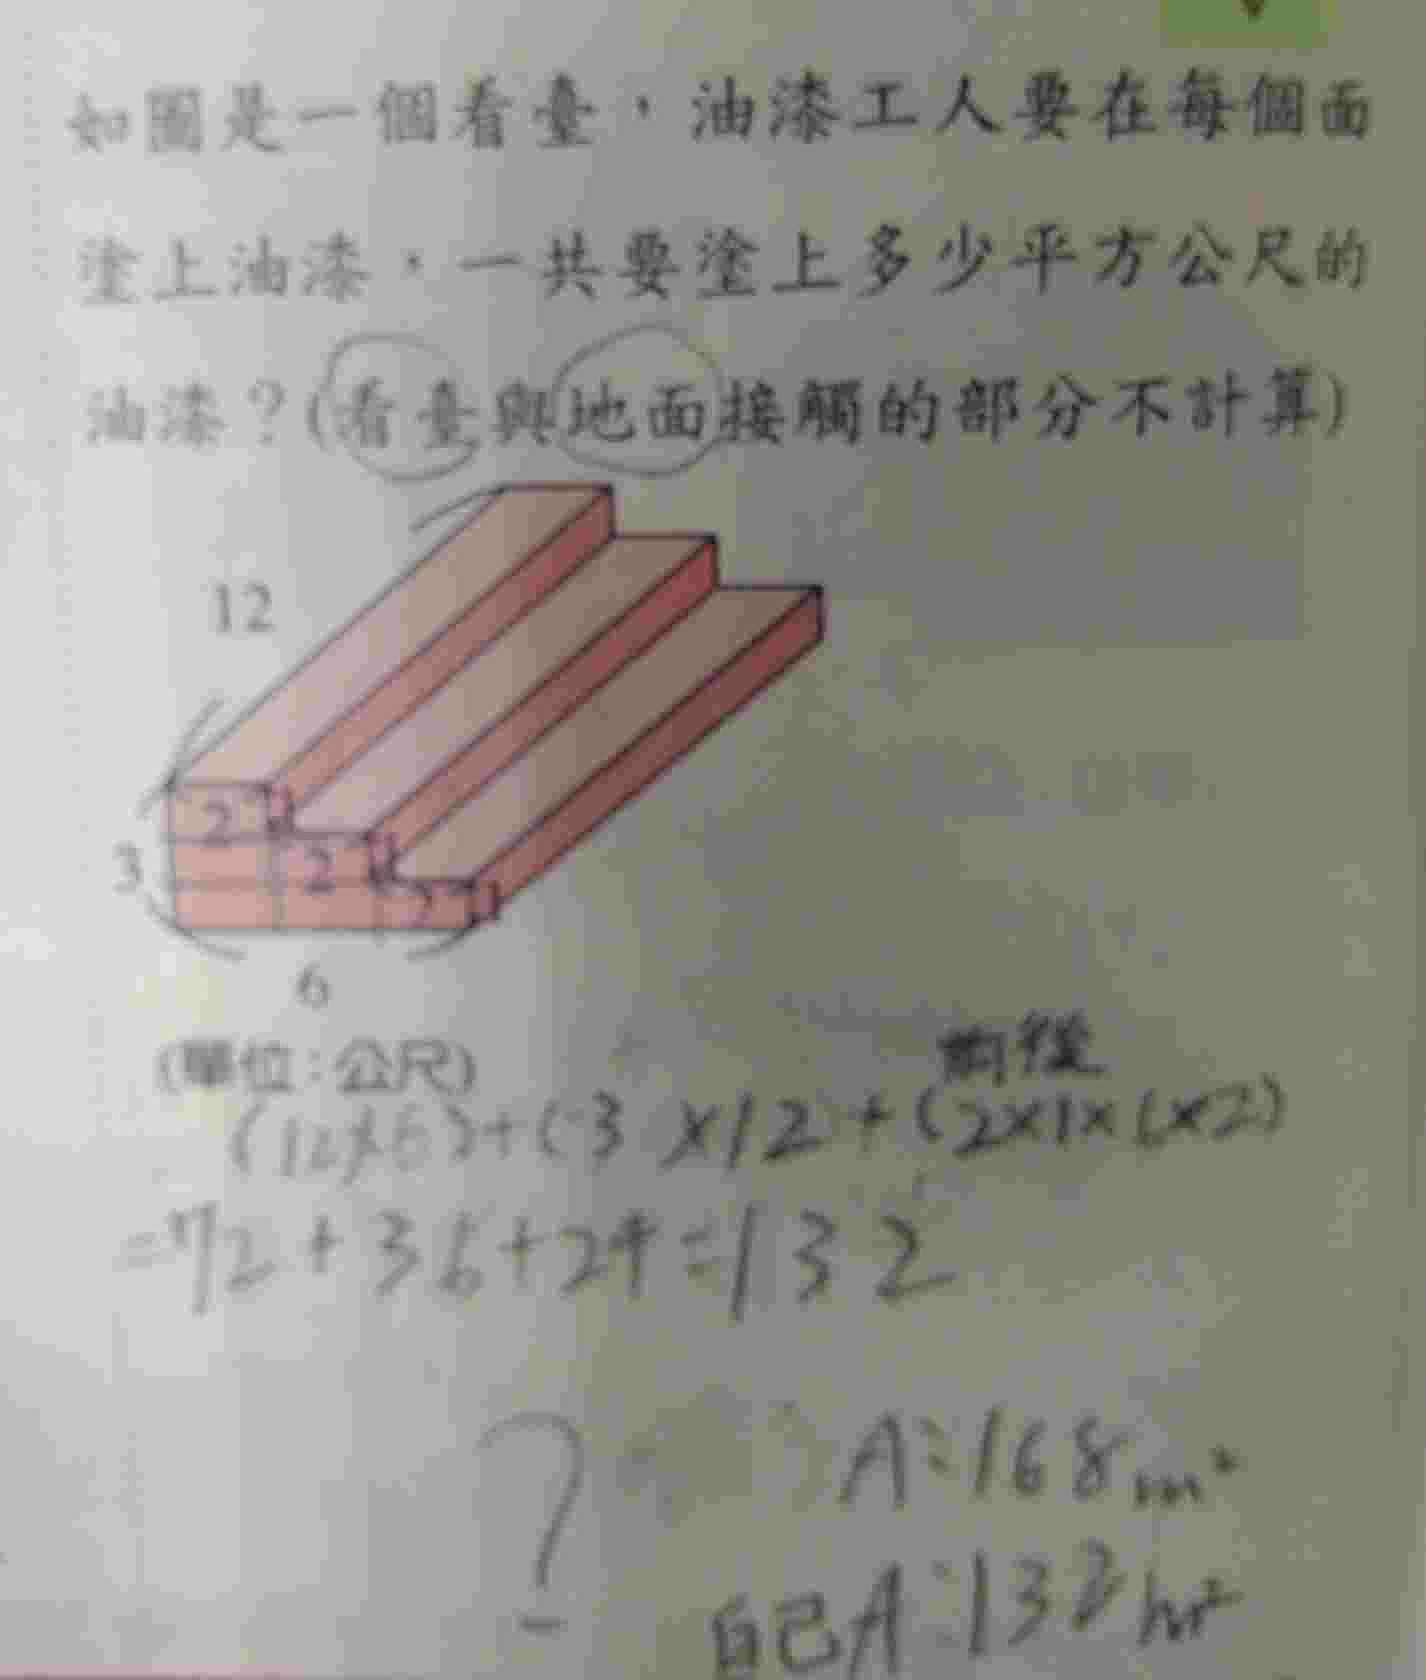 如圖是一個看臺，油漆工人要在每個面
塗上油漆，一共要塗上多少平方公尺的
油漆？(看臺與地面接觸的部分不計算)
12
2
3
2
2
6
(單位：公尺)
前後
(12×6)+(3×12+(2×1×6×2)
=72+36+24=132
?
A:168m²
自己A:132m²